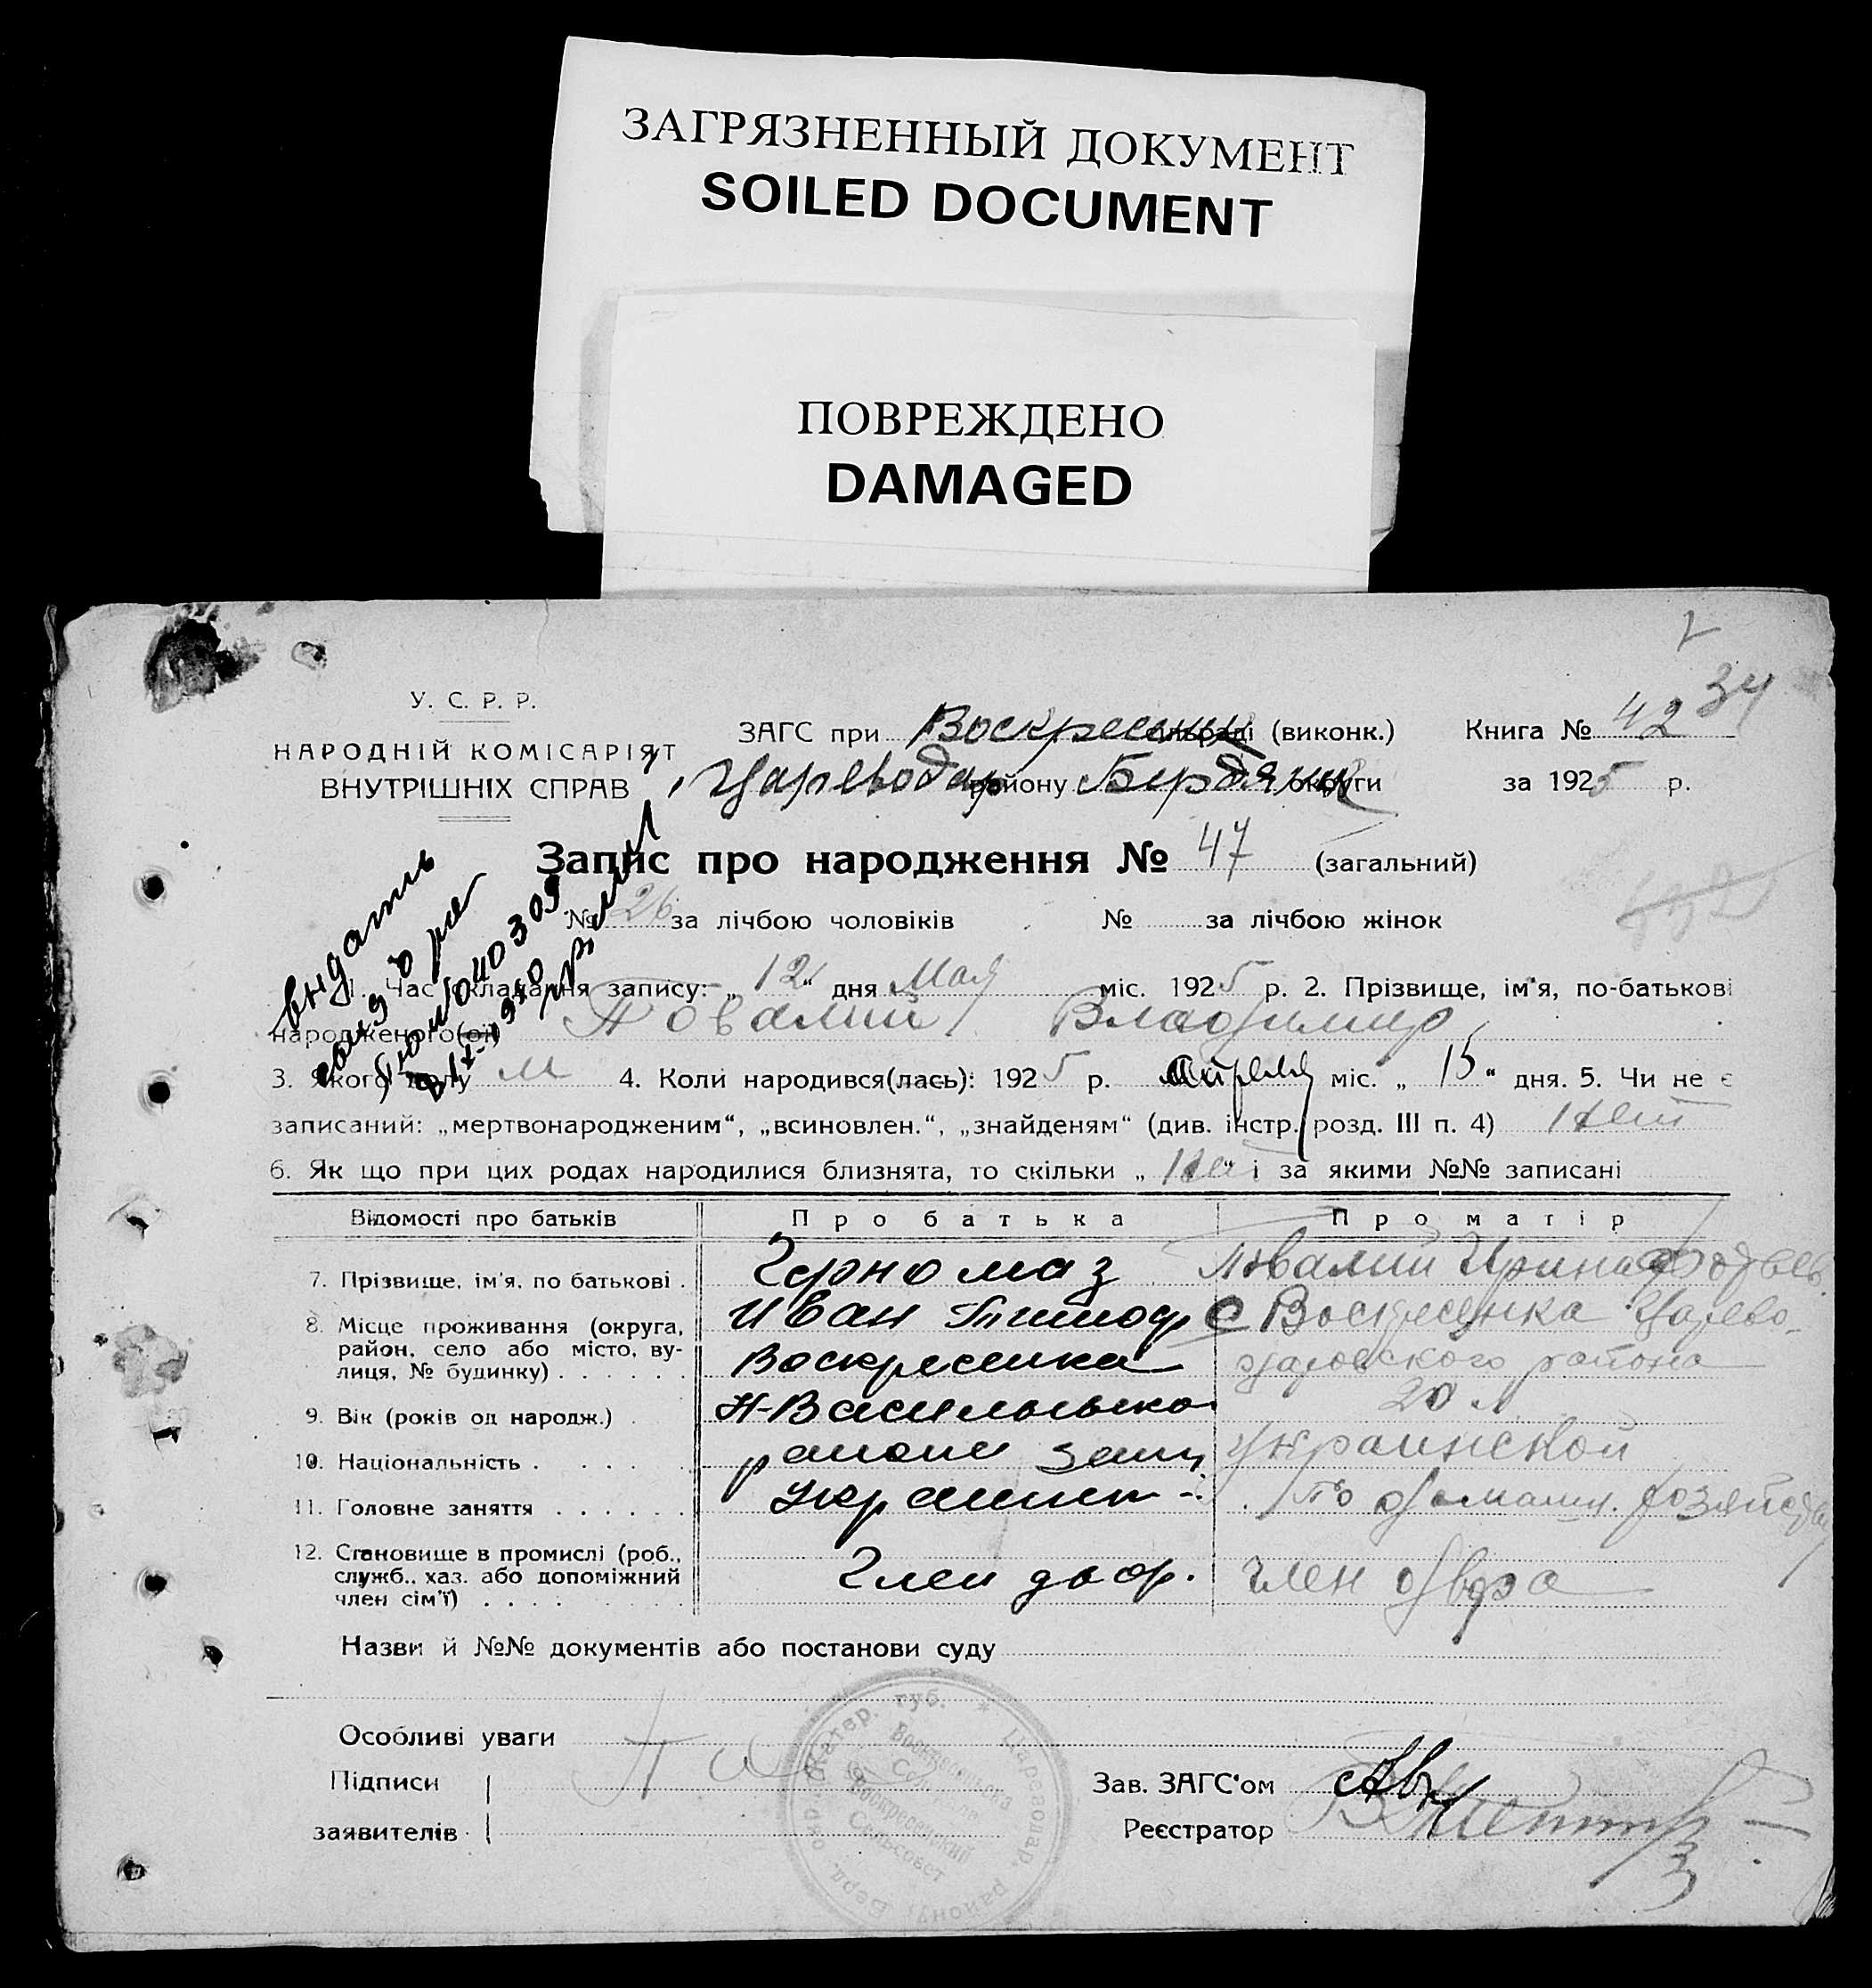 ЗАГРЯЗНЕННЫЙ ДОКУМЕНТ
SOILED DOCUMENT
ПОВРЕЖДЕНО
DAMAGED
34
У. С. Р. Р.
НАРОДНІЙ КОМІСАРІЯТ
ВНУТРІШНІХ СПРАВ
ЗАГС при Воскресен сільраді (виконк.) Книга № 42
Цареводар району Бердянск округи за 1925 р.
Запис про народження № 47 (загальний)
№ 26 за лічбою чоловіків № за лічбою жінок
выдать
1. Час складання запису: „12“ дня Мая міс. 1925 р. 2. Прізвище, ім'я, по-батькові
народженого(ої) Повалий Владимир
3. Якого полу м 4. Коли народився(лась): 1925 р. Апреля міс. „15“ дня. 5. Чи не є
записаний: „мертвонародженим“, „всиновлен.“, „знайденям“ (див. інстр. розд. III п. 4) Нет
6. Як що при цих родах народилися близнята, то скільки „ “ і за якими №№ записані
Відомості про батьків Про батька Про матір
7. Прізвище, ім'я, по батькові . Черномаз Повалий Ирина
8. Місце проживання (округа, район, село або місто, вулиця, № будинку) . . . . . . Иван С Воскресенка Царево-
Воскресенка даровского района
9. Вік (років од народж.) . Н-Васильевка 20 л
10. Національність . . . . района Украинской
11. Головне заняття . . . . . . Украинец По домашн. хозяйству
12. Становище в промислі (роб., служб., хаз. або допоміжний член сім'ї) . . . . Член двор. член двора
Назви й №№ документів або постанови суду
Особливі уваги
Підписи
заявителів
Зав. ЗАГС'ом
Реєстратор
Катер. губ. * Цареводар. району Берд. окр.
Воскресенський
Сельсовет